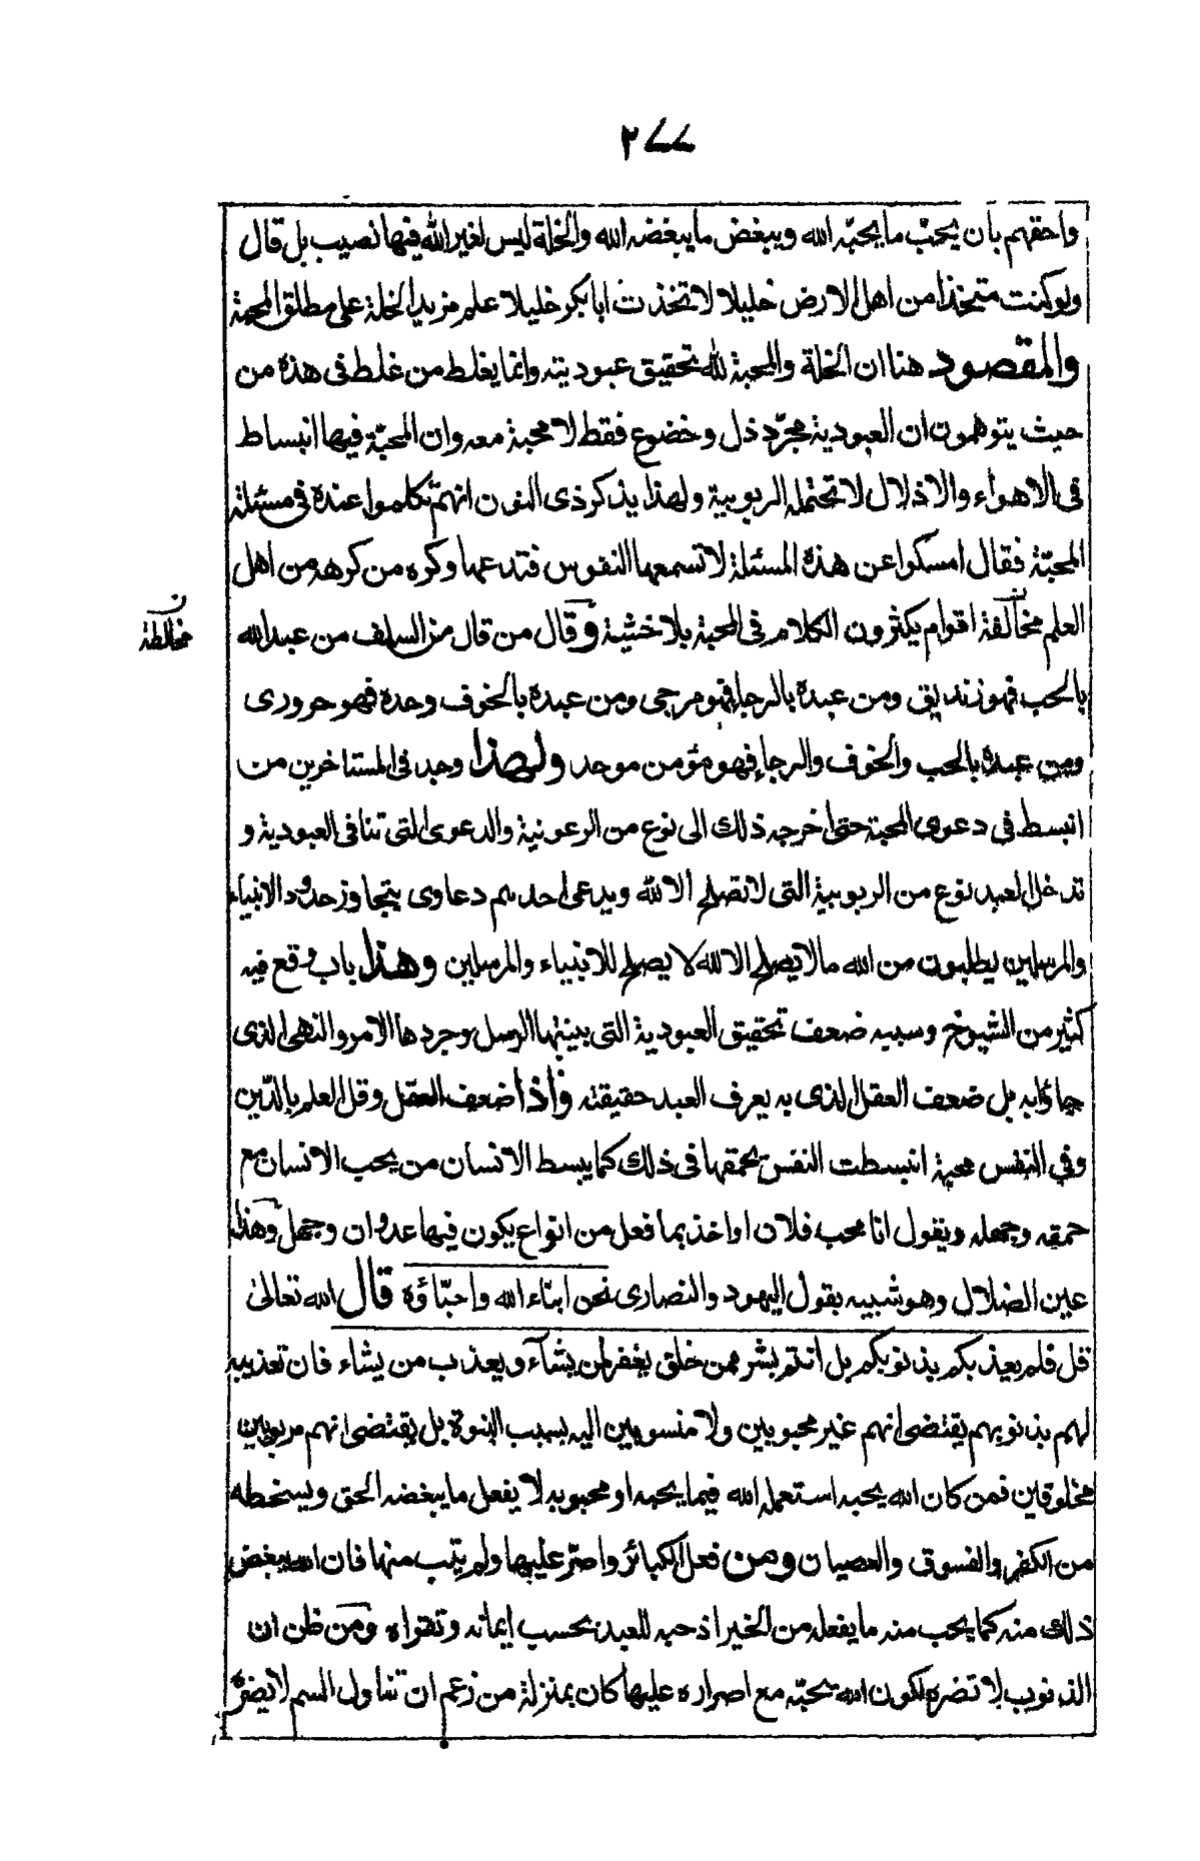 ٢٧٧
واحقهم بان يحبّ ما يحبّه الله ويبغض ما يبغضه الله والخلة ليس لغير الله فيها نصيب بل قال
ولو كنت متخذا من اهل الارض خليلا لاتخذت ابا بكر خليلا علم مزيد الخلة على مطلق المحبة
والمقصود هنا ان الخلة والمحبة لله تحقيق عبوديته وانما يغلط من غلط فى هذه من
حيث يتوهمون ان العبودية مجرّد ذل وخضوع فقط لا محبة معه وان المحبّة فيها انبساط
فى الاهواء والاذلال لا تحتمله الربوبية ولهذا يذكر ذى النون انهم تكلموا عنده فى مسئلة
المحبّة فقال امسكوا عن هذه المسئلة لا تسمعها النفوس فتدعها وكره من كره من اهل
العلم مخالفة اقوام يكثرون الكلام فى المحبة بلا خشية وقال من قال من السلف من عبد الله
ن مخالطة
بالحب فهو زنديق ومن عبده بالرجاء فهو مرجى ومن عبده بالخوف وحده فهو حرورى
ومن عبده بالحب والخوف والرجاء فهو مؤمن موحد ولهذا وجد فى المستاخرين من
انبسط فى دعوى المحبة حتى اخرجه ذلك الى نوع من الرعونية والدعوى التى تنافى العبودية و
تدخل العبد نوع من الربوبية التى لا تصلح الا لله ويدعى احدهم دعاوى يتجاوز حدود الانبياء
والمرسلين يطلبون من الله ما لا يصلح الا لله لا يصلح للانبياء والمرسلين وهذا باب وقع فيه
كثير من الشيوخ وسببه ضعف تحقيق العبودية التى بينتها الرسل وجردها الامر والنهى الذى
جاؤا به بل ضعف العقل الذى به يعرف العبد حقيقته واذا ضعف العقل وقل العلم بالدّين
وفى النفس محبة انبسطت النفس بحمقها فى ذلك كما يبسط الانسان من يحب الانسان مع
حمقه وجهله ويقول انا محب فلان اواخذ بما فعل من انواع يكون فيها عدوان وجهل وهذا
عين الضلال وهو شبيه بقول اليهود والنصارى نحن ابنّاء الله واحبّاؤه قال الله تعالى
قل فلم يعذبكم بذنوبكم بل انتم بشر ممن خلق يغفر لمن يشآء ويعذب من يشاء فان تعذيبه
لهم بذنوبهم يقتضى انهم غير محبوبين ولا منسوبين اليه بسبب البنوة بل يقتضى انهم مربوبين
مخلوقين فمن كان الله يحبه استعمله الله فيما يحبه او محبوبه لا يفعل ما يبغضه الحق ويسخطه
من الكفر والفسوق والعصيان ومن فعل الكبائر واصرّ عليها ولم يتب منها فان الله يبغض
ذلك منه كما يحب منه ما يفعله من الخير اذ حبه للعبد بحسب ايمانه وتقواه ومن ظن ان
الذنوب لا تضره لكون الله يحبّه مع اصراره عليها كان بمنزلة من زعم ان تناول السم لا يضرّه